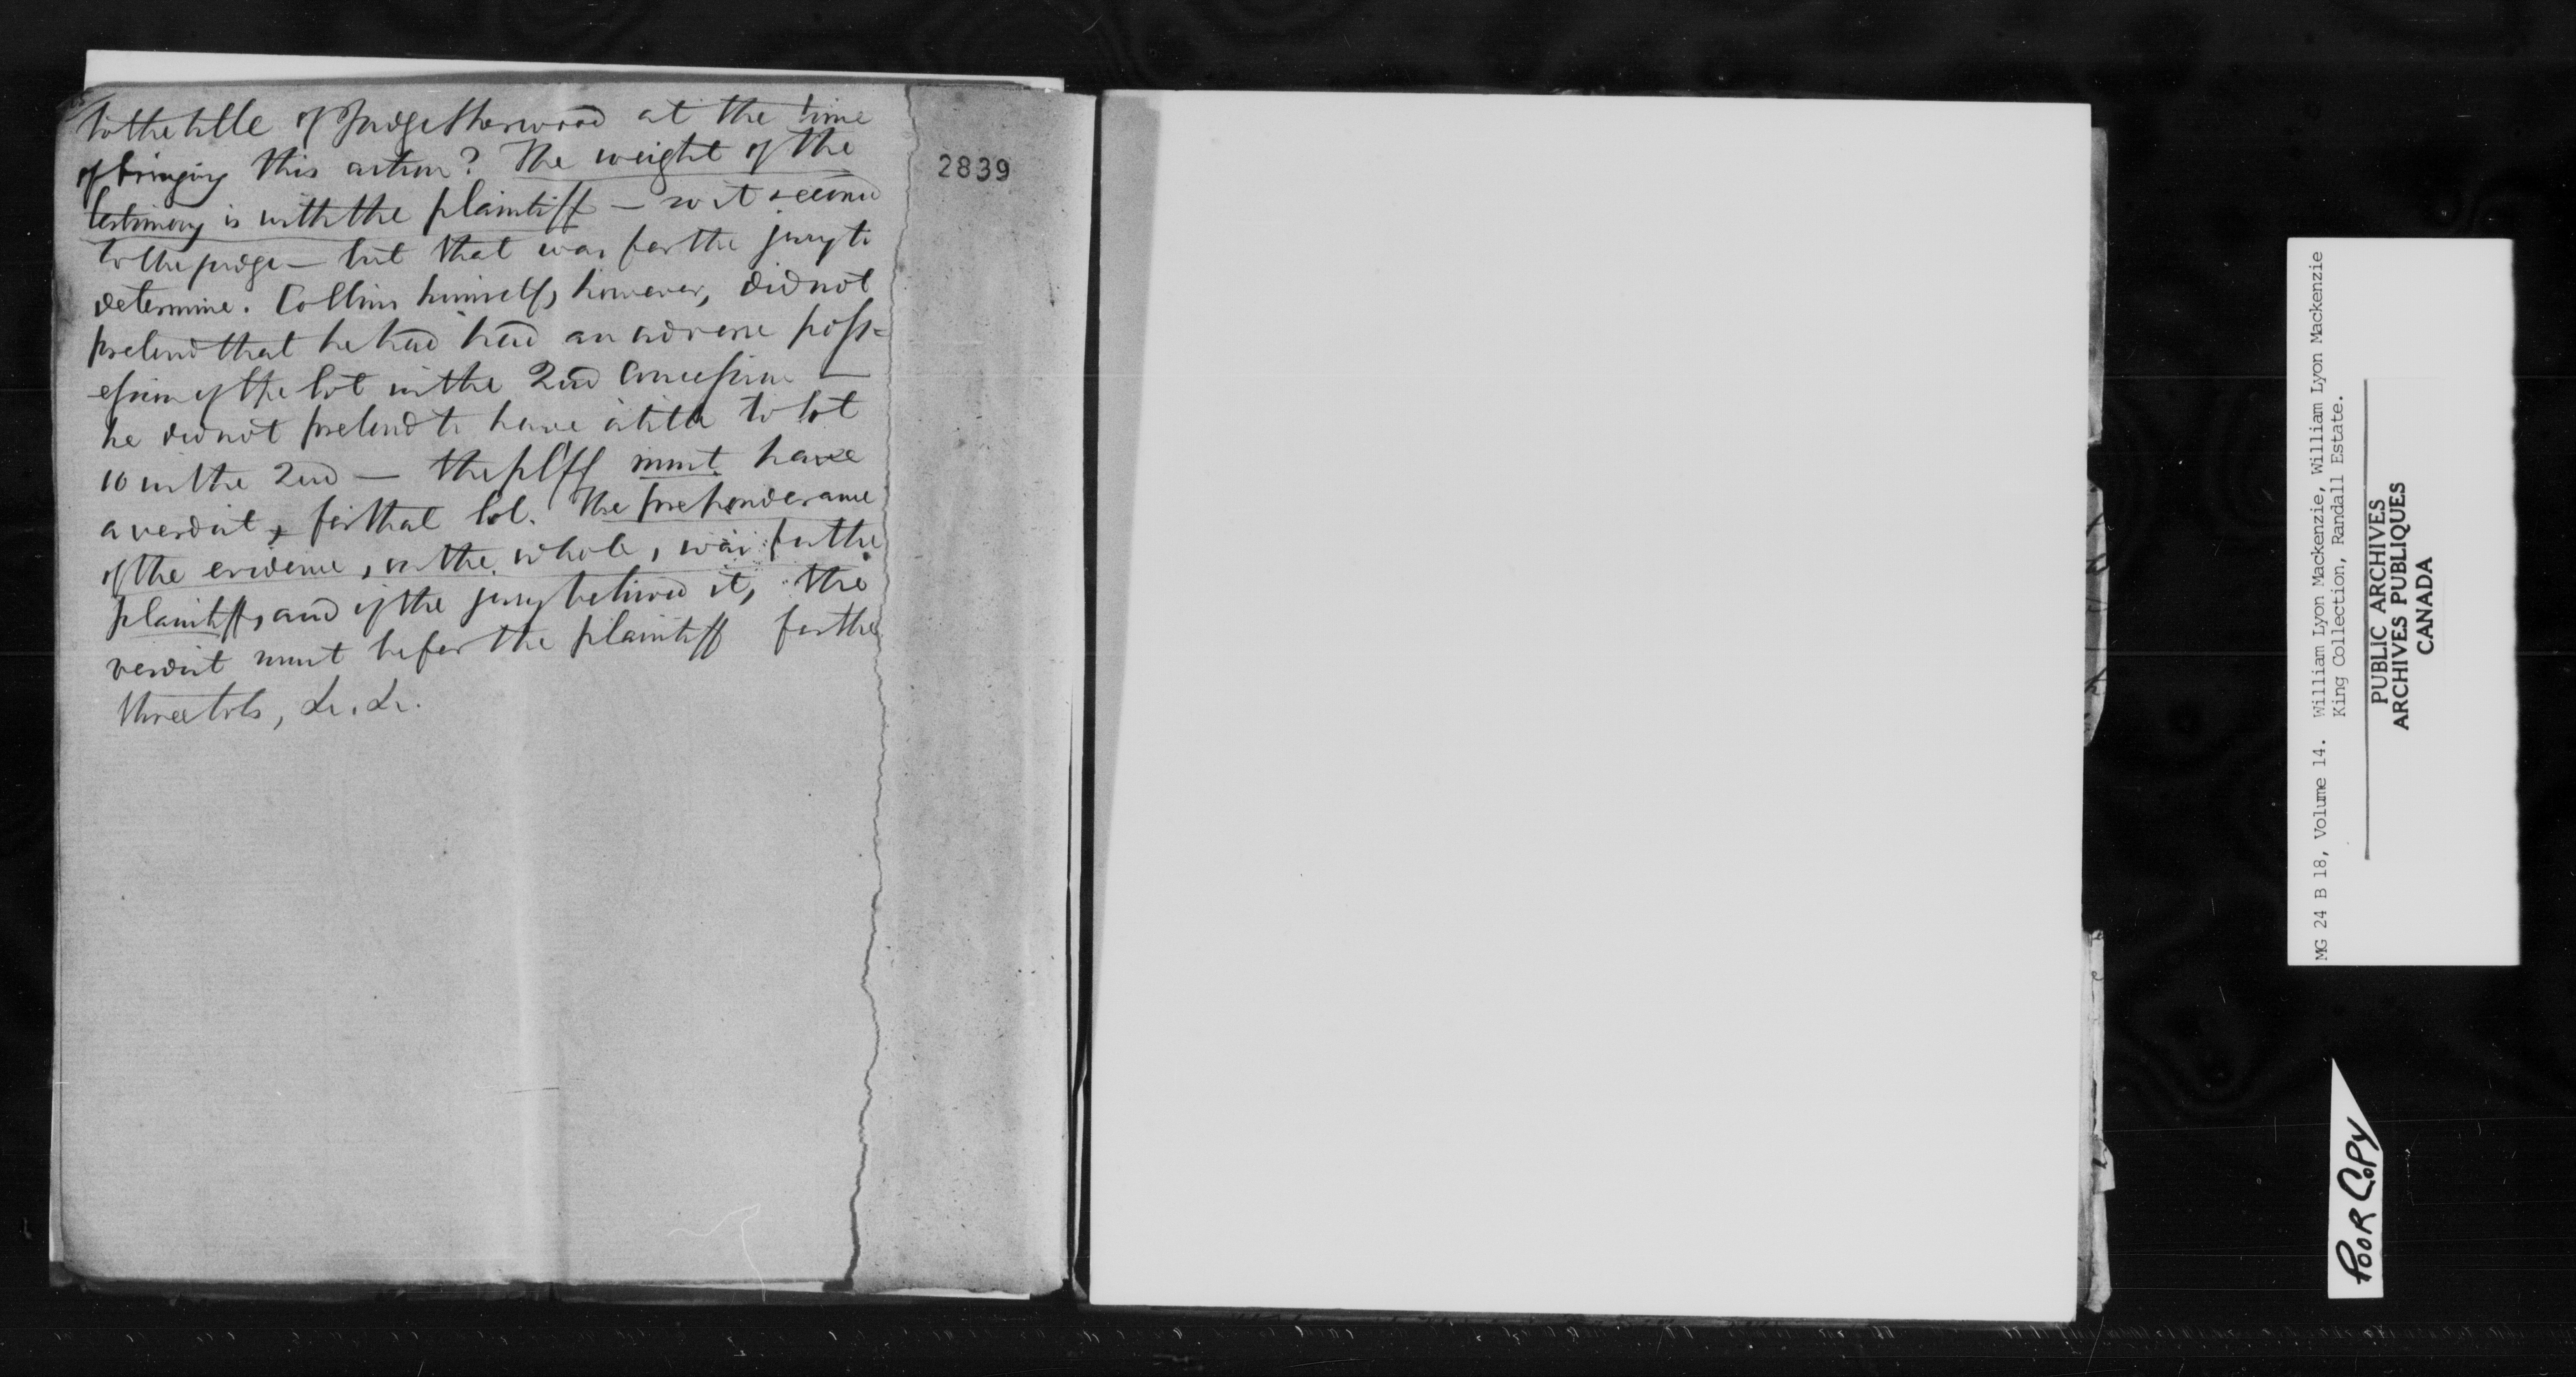 to the title of Judge Sherwood at the time
of bringing this action? The weight of the
testimony is with the plaintiff — so it seemed
to the judge — but that was for the jury to
determine. Collins himself, however, did not
pretend that he had had an adverse poss=
ession of the lot in the 2nd Concession —
he did not pretend to have a title to lot
10 in the 2nd — the plff must have
a verdict, for that lot. The preponderance
of the evidence, on the whole, was for the
plaintiff, and if the jury believed it, the
verdict must be for the plaintiff for the
three lots, &c. &c.
2839
MG 24 B 18, Volume 14. William Lyon Mackenzie, William Lyon Mackenzie
King Collection, Randall Estate.
PUBLIC ARCHIVES
ARCHIVES PUBLIQUES
CANADA
POOR COPY